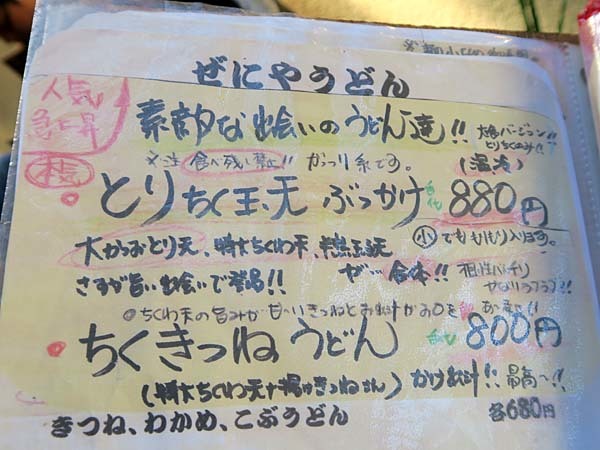 ぜにやうどん
人気
急上昇
素敵な出会いのうどん達!!
※注 食べ残し禁止!! がっつり系です。
(温・冷)
とりちく玉天 ぶっかけ 880円
大かつみとり天、特大ちくわ天、半熟玉子天
小でももりもり入ります。
さすが旨い出会いで登場!! が…合体!! 相性バッチリ
ちくわ天の旨みが甘〜いきつねとお汁がお口を
ちくきつねうどん 800円
(特大ちくわ天+揚げきつねさん) かけお汁!! 最高〜!!
きつね、わかめ、こぶうどん 各680円